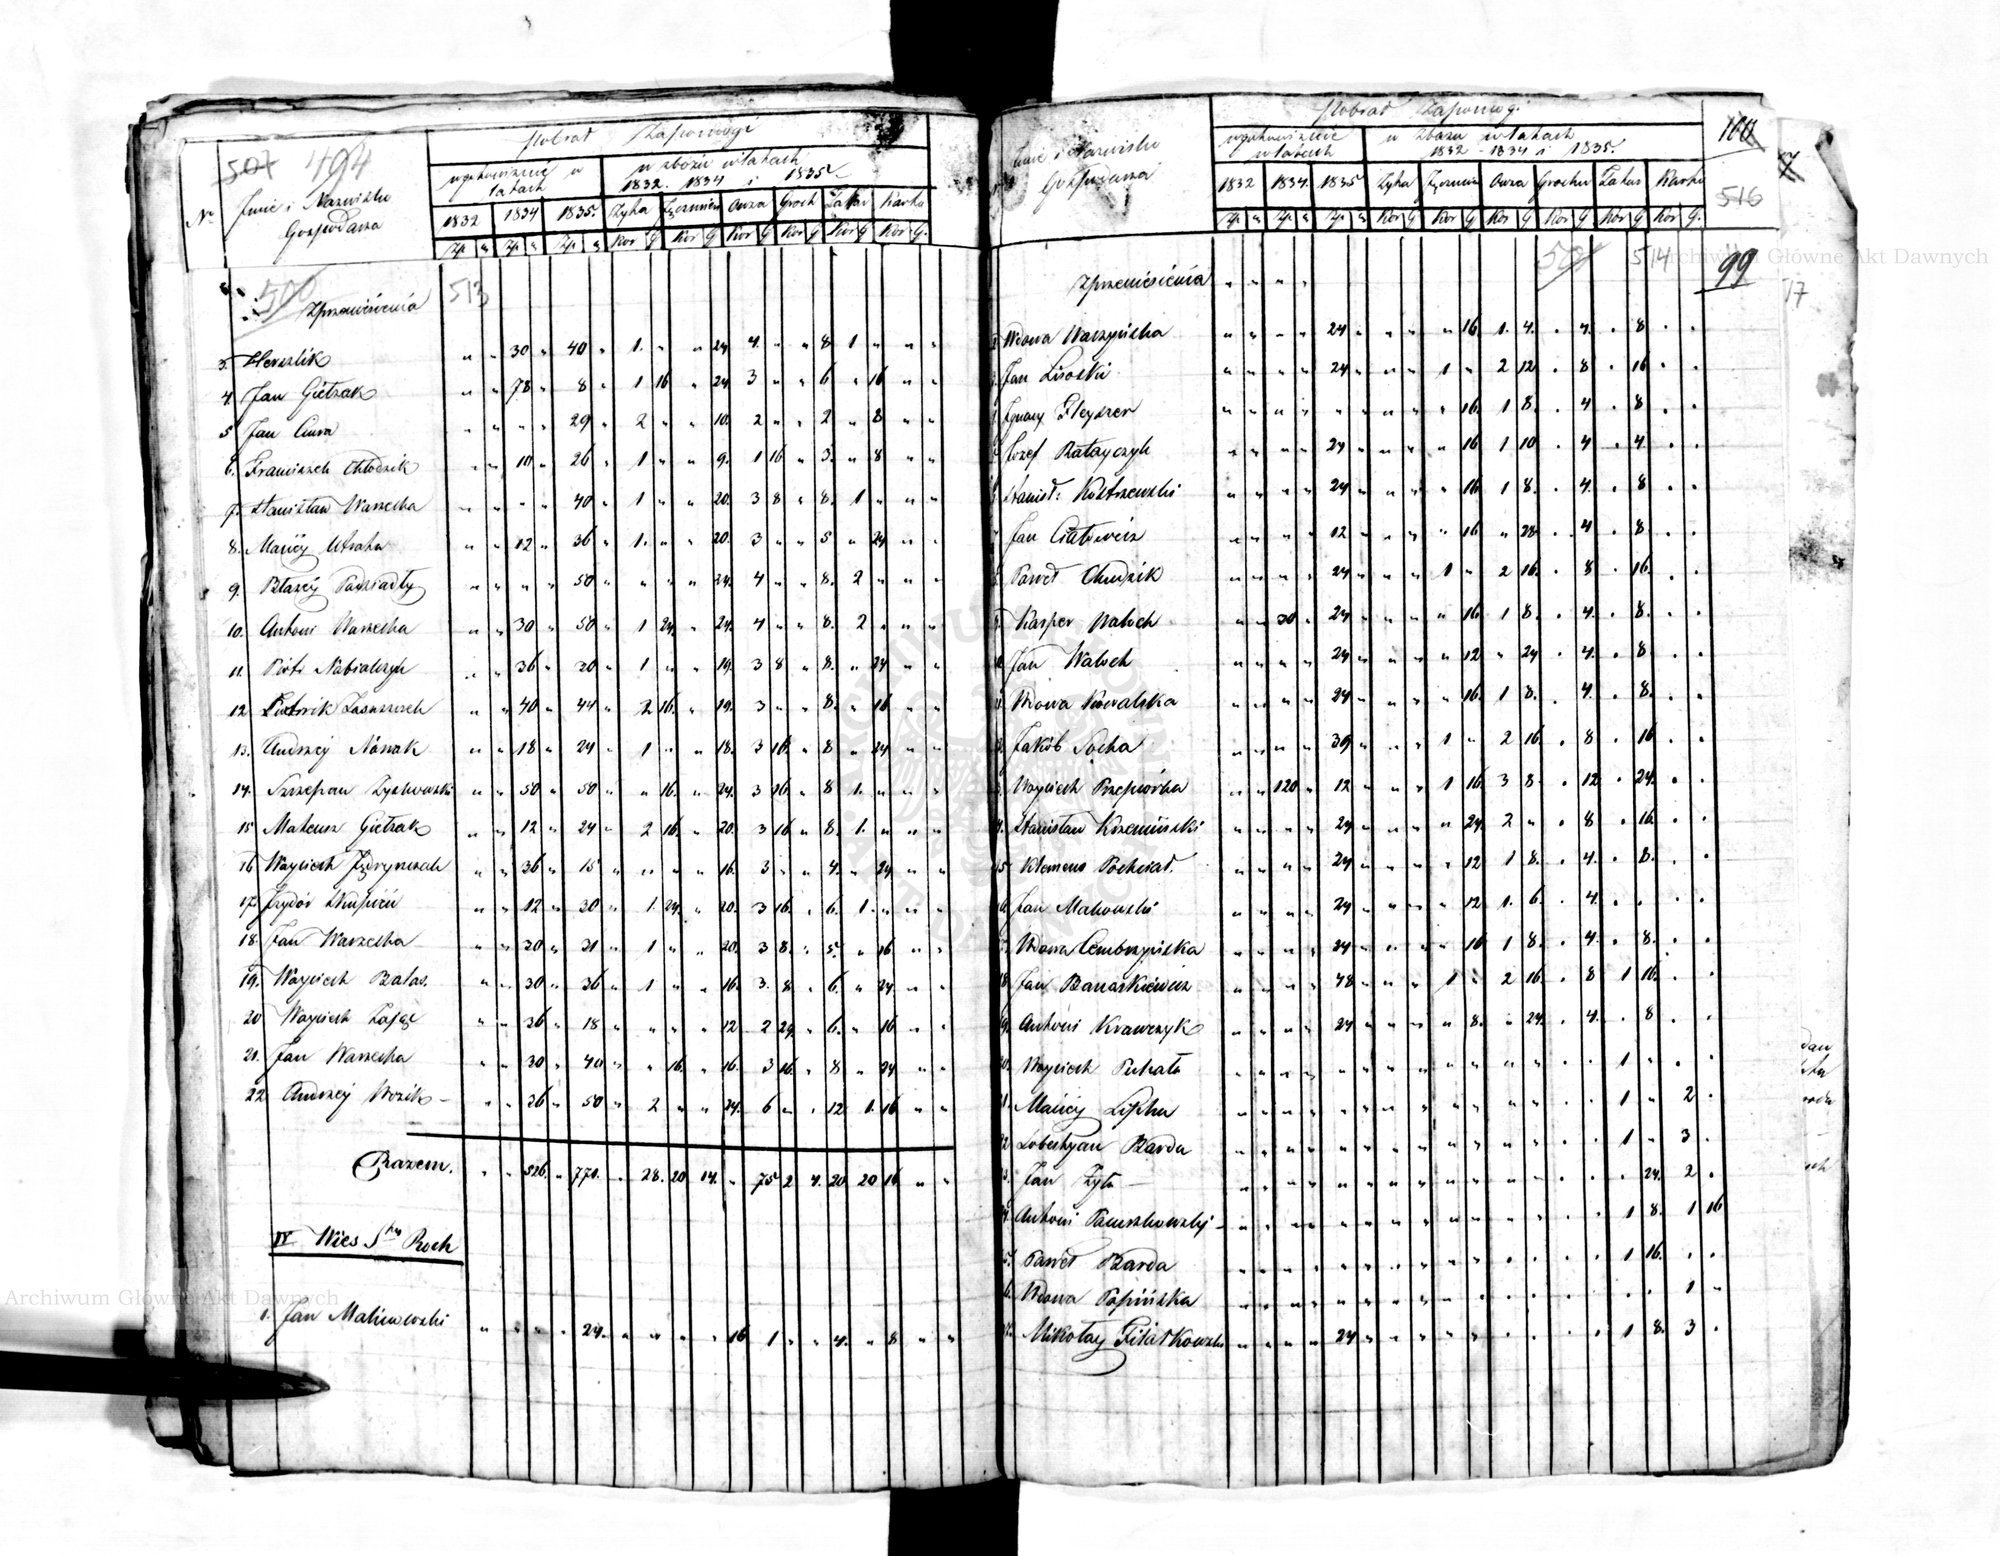 507 494
Pobrał Zapomogi
w gotowiznie w latach
w zbożu w latach
1832. 1834 i 1835.
Nr Jmie i Nazwisko Gospodarza
1832 1834 1835. Żyta Jęczmien Owsa Groch Tatar Kartof
Zp. g Zp. g Zp. g Kor G Kor G Kor G Kor G Kor G Kor G.
500 Zprzeniesienia 513
3. Herszlik " " 30 " 40 " 1. " " 24 4. " " 8 1 " " "
4. Jan Gietzak " " 78 " 8 " 1 16 " 24 3 " " 6 " 16 " "
5 Jan Ciura " " " " 29 " 2 " " 10. 2 " " 2 " 8 " "
6. Franciszek Chłodzik " " 10 " 26 " 1 " " 9. 1 16 " 3. " 8 " "
7. Stanisław Warzecha " " " " 40 " 1 " " 20. 3 8 " 8. 1 " " "
8. Maciey Utrata " " 12 " 36 " 1. " " 20. 3 " " 5 " 24 " "
9. Błażey Podsiadły " " " " 50 " " " " 24. 4 " " 8. 2 " " "
10. Antoni Warzecha " " 30 " 50 " 1 24. " 24. 4 " " 8. 2 " " "
11. Piotr Nabialczyk " " 36 " 20 " 1 " " 19. 3 8 " 8. " 24 " "
12 " " 40 " 44 " 2 16. " 19. 3 " " 8. " 16 " "
13. Andrzey Nowak " " 18 " 24 " 1 " " 18. 3 16. " 8 " 24 " "
14. Szczepan Zychowski " " 50 " 50 " " 16. " 24. 3 16. " 8 1. " " "
15 Mateusz Gietzak " " 12 " 24 " 2 16. " 20. 3 16 " 8. 1. " " "
16 Woyciech Jędryszczak " " 36 " 15 " " " " 16. 3 " " 4. " 24 " "
17. Jzydor Skupień " " 12 " 30 " 1. 24. " 20. 3 16. " 6. 1. " " "
18. Jan Warzecha " " 20 " 21 " 1 " " 20. 3 8. " 5. " 16 " "
19. Woyciech Balas. " " 30 " 36 " 1 " " 16. 3. 8 " 6. " 24 " "
20 Woyciech Zając " " 36 " 18 " " " " 12 2 24. " 6. " 16 " "
21. Jan Warzecha " " 30 " 40 " " 16. " 16. 3 16. " 8 " 24 " "
22 Andrzey Wozik " " 26 " 50 " 2 " " 24. 6 " " 12 1. 16 " "
Razem. " " 526. " 771. " 28. 20 14. " 75 2 4. 20 20 16 " "
IV Wies Sty Roch
1. Jan Malinowski " " " " 24. " " " " 16 1 " " 4. " 8 " "
100
516
Jmie i Nazwisko Gospodarza
Pobrał Zapomogi
w gotowiznie w latach
w zbożu w latach
1832 1834 i 1835.
1832 1834. 1835 Żyta Jęczmien Owsa Grochu Tatar Kartof
Zp. g Zp. g Zp. g Kor G Kor G Kor G Kor G Kor G Kor G.
501 514 99
Zprzeniesienia
Wdowa Warzyńska " " " " 24 " " " " 16 1. 4. . 4. . 8 . .
Jan Lisoski " " " " 24 " " " 1 " 2 12. . 8 . 16 . .
Jgnacy Fleyszer " " " " " " " " " 16. 1 8. . 4 . 8 . .
Jozef Ratayczyk " " " " 24 " " " " 16 1 10 . 4 . 4. . .
Stanisł: Kostrzewski " " " " 24 " " " " 16. 1 8. . 4. . 8 . .
Jan " " " " 12 " " " " 16 " 28 . 4 . 8 . .
Paweł Chudzik " " " " 24 " " " 1 " 2 16. . 8 . 16. . .
Kasper Waloch " " 30 " 24 " " " " 16 1 8 . 4. . 8. . .
Jan Waloch " " " " 24 " " " " 12 " 24 . 4. . 8 . .
Wdowa Kowalska " " " " 24 " " " " 16. 1 8. . 4. . 8. . .
Jakób Socha " " " " 39 " " " 1 " 2 16 . 8 . 16. . .
Woyciech Przepiórka " " 120 " 12 " " " 1 16. 3 8. . 12 . 24. . .
Stanisław Krzemiński " " " " 24 " " " " 24. 2 " . 8 . 16. . .
15 Klemens Pochciał. " " " " 24 " " " " 12 1 8. . 4. . 8. . .
Jan Makowski " " " " 24 " " " " 12 1. 6. . 4. . . . .
Wdowa Cembrzyńska " " " " 24 " " " " 16 1 8. . 4. . 8. . .
18 Jan Banaskiewicz " " " " 48 " " " 1 " 2 16. . 8 1 16. . .
Antoni Krawczyk " " " " 24 " " " " 8. " 24. . 4. . 8 . .
Woyciech Puchała " " " " " " " " " " " " . . 1 " . .
Maciey Lipka " " " " " " " " " " " " . . 1 " 2 .
Barda " " " " " " " " " " " " . . 1 " 3 .
Jan Zyta " " " " " " " " " " " " . . . 24. 2 .
Antoni " " " " " " " " " " " " . . 1 8. 1 16
Paweł Barda " " " " " " " " " " " " . . 1 16. . .
Wdowa Papińska " " " " " " " " " " " " . . . . 1 "
Mikołay Fiłatkowski " " " " 24 " " " " . . . . . 1 8. 3 .
17
Archiwum Główne Akt Dawnych
Archiwum Główne Akt Dawnych